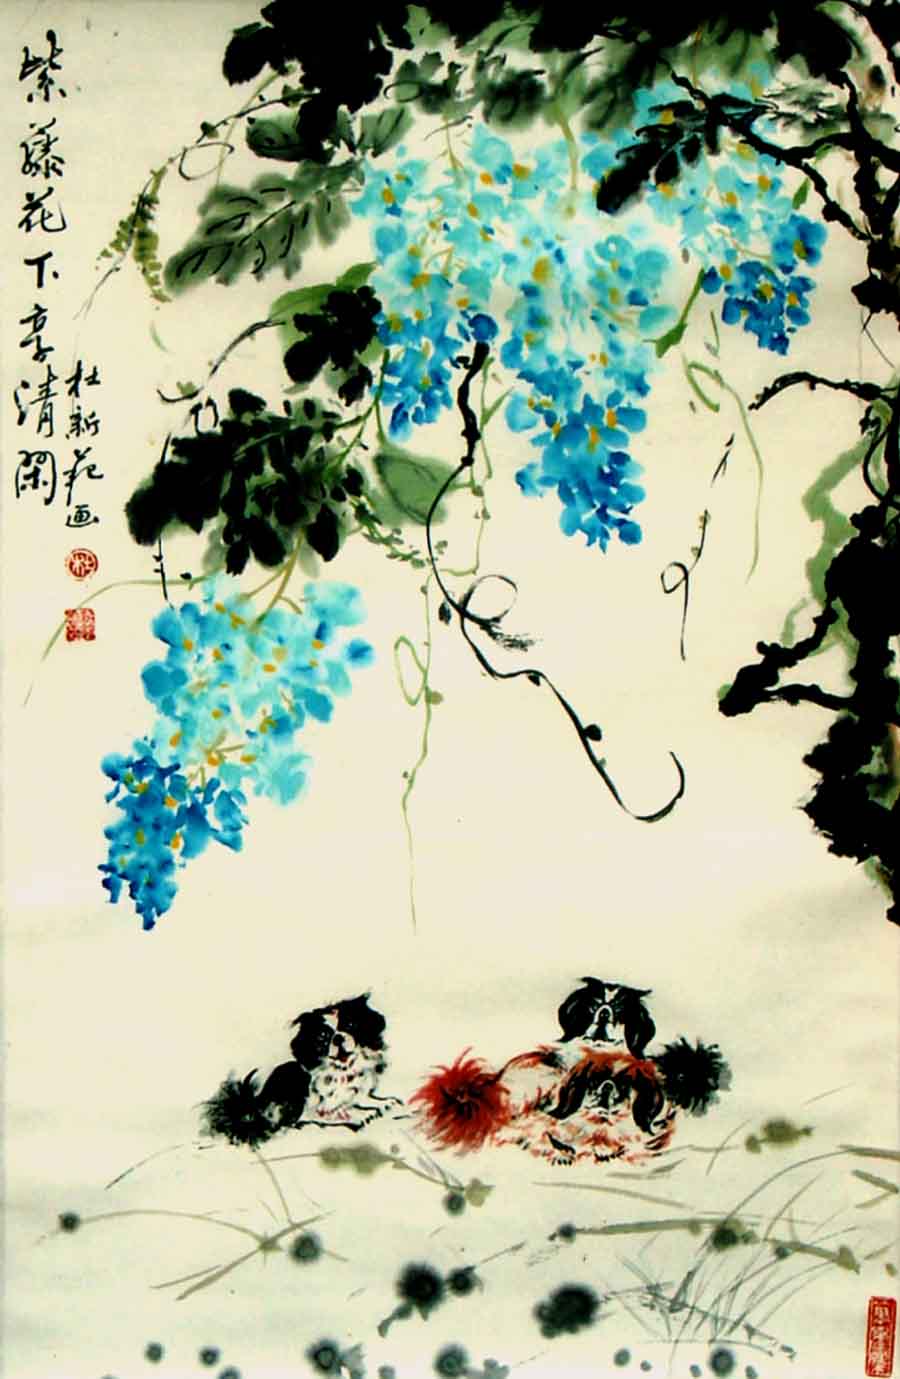 紫藤花下享清闲
杜新苑画
杜